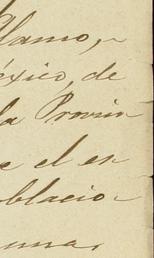 Alamo,-
éxico, de
la Provin
e el en
oblacio-
una,